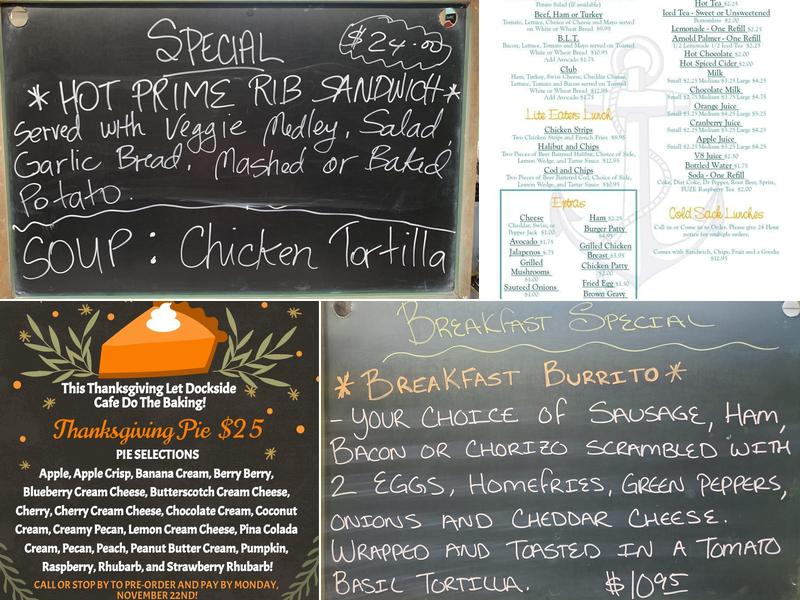 SPECIAL
$24.00
* HOT PRIME RIB SANDWICH *
Served with Veggie Medley, Salad
Garlic Bread, Mashed or Baked
Potato.
SOUP : Chicken Tortilla
Potato Salad (if available)
Beef, Ham or Turkey
Tomato, Lettuce, Choice of Cheese and Mayo served
on White or Wheat Bread $9.95
B.L.T.
Bacon, Lettuce, Tomato and Mayo served on Toasted
White or Wheat Bread $10.95
Add Avocado $1.75
Club
Ham, Turkey, Swiss Cheese, Cheddar Cheese,
Lettuce, Tomato and Bacon served on Toasted
White or Wheat Bread $12.95
Add Avocado $1.75
Lite Eaters Lunch
Chicken Strips
Two Chicken Strips and French Fries $8.95
Halibut and Chips
Two Pieces of Beer Battered Halibut, Choice of Side,
Lemon Wedge, and Tartar Sauce $12.95
Cod and Chips
Two Pieces of Beer Battered Cod, Choice of Side,
Lemon Wedge, and Tartar Sauce $10.95
Extras
Cheese
Cheddar, Swiss, or
Pepper Jack $1.00
Avocado $1.75
Jalapenos $.75
Grilled
Mushrooms
$1.00
Sauteed Onions
$1.00
Ham $2.25
Burger Patty
$4.95
Grilled Chicken
Breast $3.95
Chicken Patty
Fried Egg $1.50
Brown Gravy
Hot Tea $2.25
Iced Tea - Sweet or Unsweetened
Bottomless $2.00
Lemonade - One Refill $2.25
Arnold Palmer - One Refill
1/2 Lemonade 1/2 Iced Tea $2.25
Hot Chocolate $2.00
Hot Spiced Cider $2.00
Milk
Small $2.25 Medium $3.25 Large $4.25
Chocolate Milk
Small $2.75 Medium $3.75 Large $4.75
Orange Juice
Small $2.25 Medium $3.25 Large $4.25
Cranberry Juice
Small $2.25 Medium $3.25 Large $4.25
Apple Juice
Small $2.25 Medium $3.25 Large $4.25
V8 Juice $2.50
Bottled Water $1.75
Soda - One Refill
Coke, Diet Coke, Dr Pepper, Root Beer, Sprite,
FUZE Raspberry Tea $2.00
Cold Sack Lunches
Call in or Come in to Order. Please give 24 Hour
notice for multiple orders.
Comes with Sandwich, Chips, Fruit and a Goodie
$12.95
This Thanksgiving Let Dockside
Cafe Do The Baking!
Thanksgiving Pie $25
PIE SELECTIONS
Apple, Apple Crisp, Banana Cream, Berry Berry,
Blueberry Cream Cheese, Butterscotch Cream Cheese,
Cherry, Cherry Cream Cheese, Chocolate Cream, Coconut
Cream, Creamy Pecan, Lemon Cream Cheese, Pina Colada
Cream, Pecan, Peach, Peanut Butter Cream, Pumpkin,
Raspberry, Rhubarb, and Strawberry Rhubarb!
CALL OR STOP BY TO PRE-ORDER AND PAY BY MONDAY,
NOVEMBER 22ND!
BREAKFAST SPECIAL
* BREAKFAST BURRITO *
- YOUR CHOICE OF SAUSAGE, HAM,
BACON OR CHORIZO SCRAMBLED WITH
2 EGGS, HOMEFRIES, GREEN PEPPERS,
ONIONS AND CHEDDAR CHEESE.
WRAPPED AND TOASTED IN A TOMATO
BASIL TORTILLA. $10.95